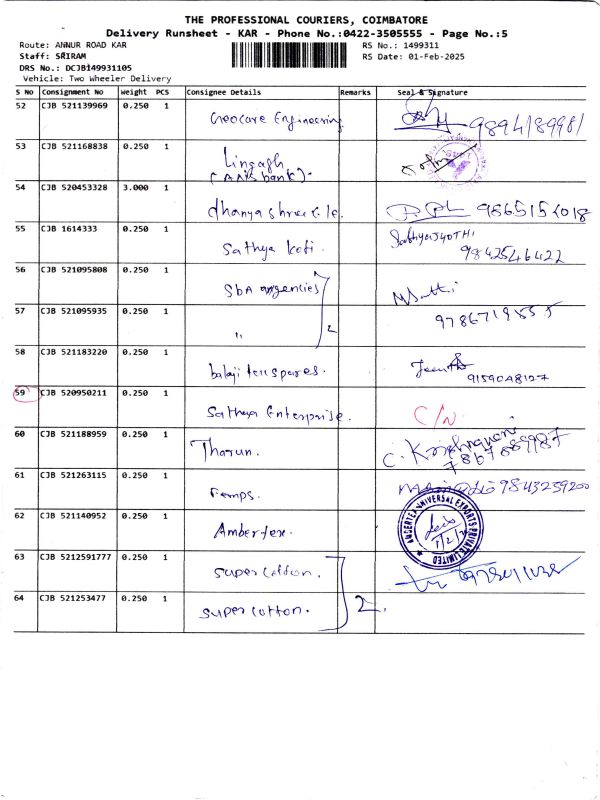 THE PROFESSIONAL COURIERS, COIMBATORE
Delivery Runsheet - KAR - Phone No.:0422-3505555 - Page No.:5
Route: ANNUR ROAD KAR RS No.: 1499311
Staff: SRIRAM RS Date: 01-Feb-2025
DRS No.: DCJB149931105
Vehicle: Two Wheeler Delivery
S No Consignment No Weight PCS Consignee Details Remarks Seal & Signature
52 CJB 521139969 0.250 1 Geocare Engineering 9894189981
53 CJB 521168838 0.250 1 Lingash
(Axis bank).
54 CJB 520453328 3.000 1 dhanya shree
55 CJB 1614333 0.250 1 Sathya koti. SathyaJYOTHI
9842546422
56 CJB 521095808 0.250 1 SbA agencies
57 CJB 521095935 0.250 1 " 2
58 CJB 521183220 0.250 1 balaji
59 CJB 520950211 0.250 1 Sathya Enterprise. C/N
60 CJB 521188959 0.250 1 Tharun. C. Krishnaveni
7867089987
61 CJB 521263115 0.250 1 Temps. 9843259200
62 CJB 521140952 0.250 1 Ambertex. AMBERTEX UNIVERSAL EXPORTS PRIVATE LIMITED
63 CJB 5212591777 0.250 1 super cotton.
64 CJB 521253477 0.250 1 super cotton. 2.